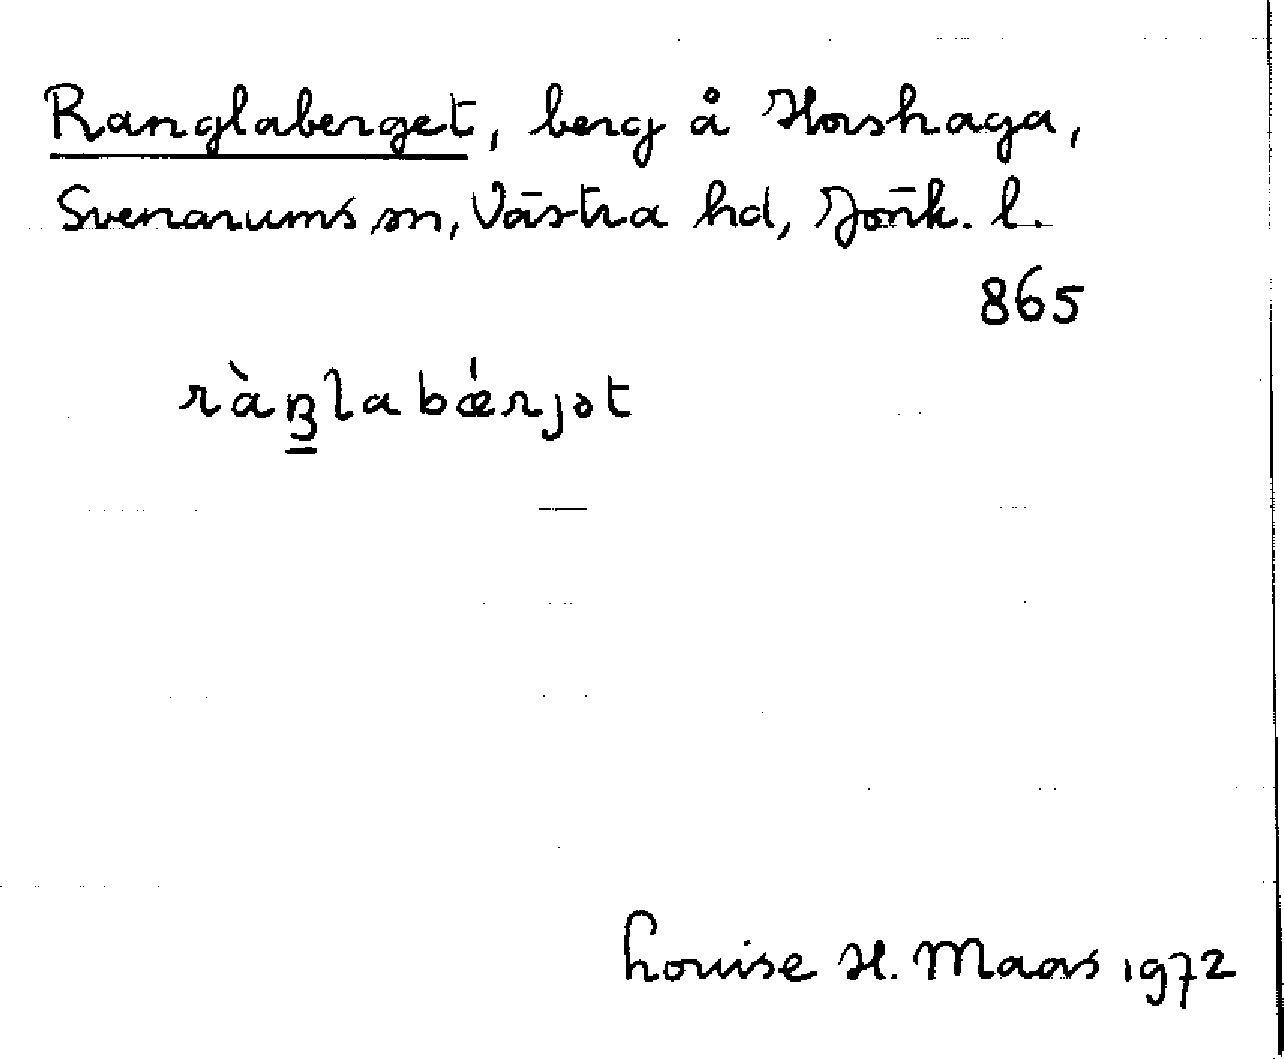 Ranglaberget, berg å Horshaga,
Svenarums sn, Västra hd, Jönk. l.
865
ràŋlabǽrjət
Louise H. Maas 1972